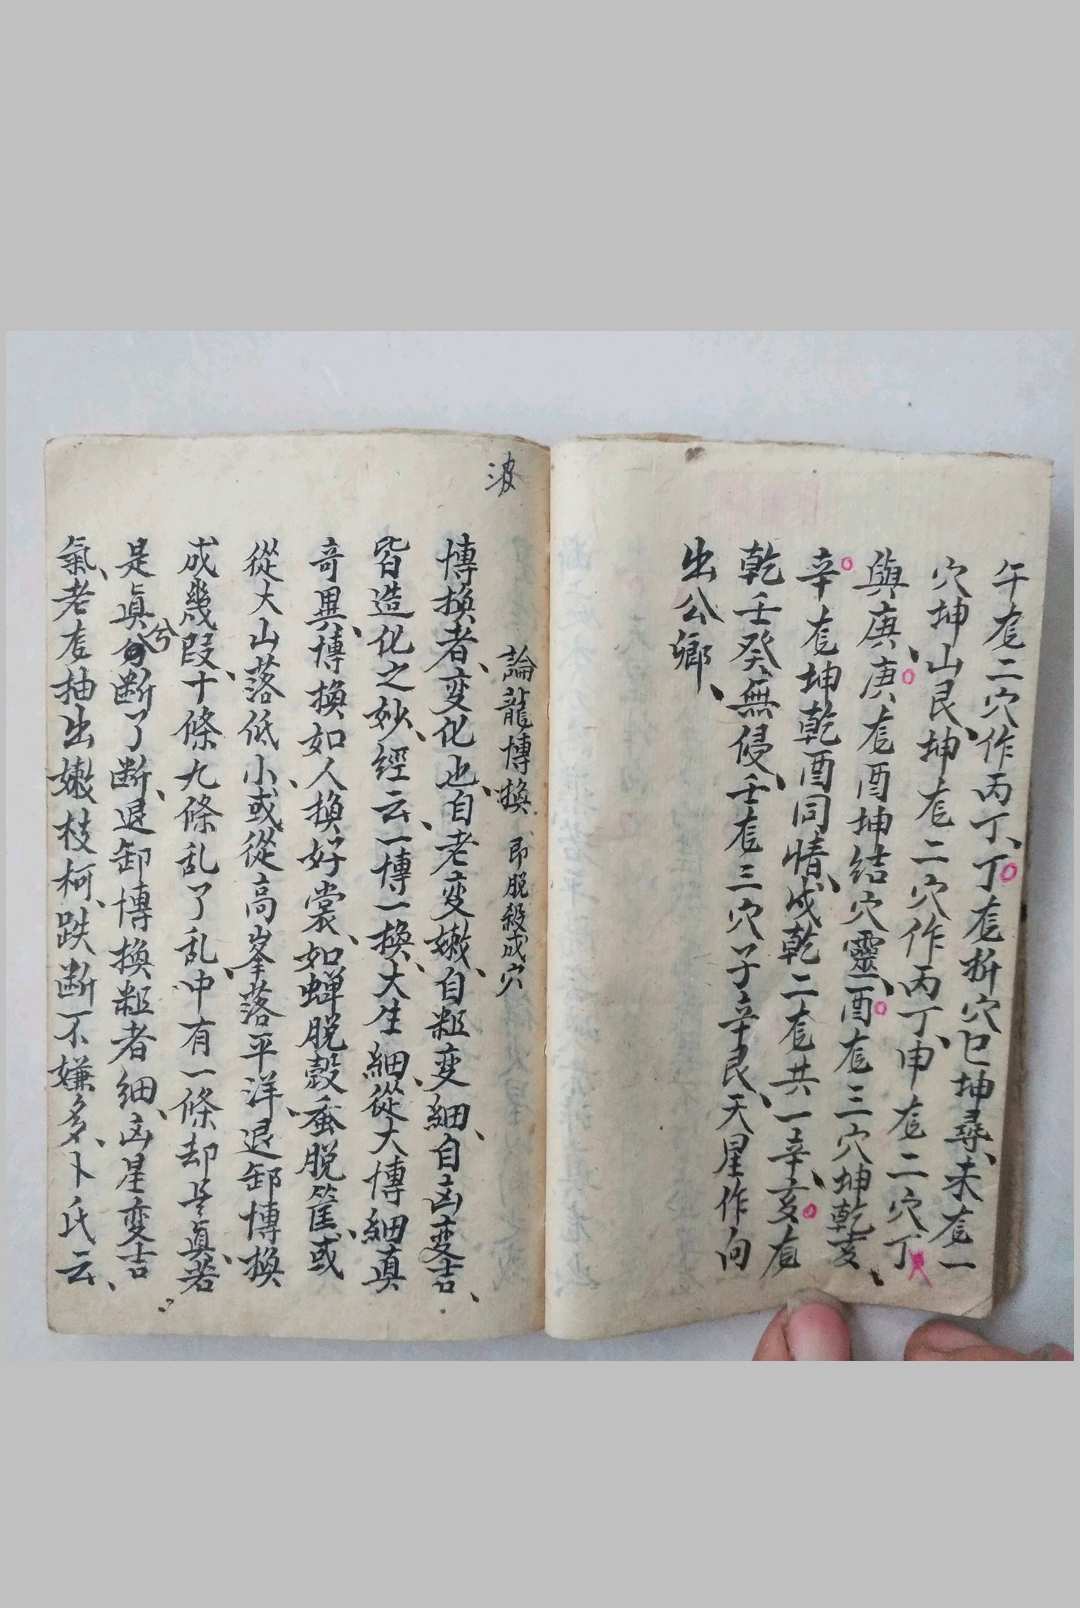 午龙二穴作丙丁、丁龙折穴巳坤尋、未龙一
穴坤山艮、坤龙二穴作丙丁、申龙二穴丁
與庚、庚龙酉坤結穴靈、酉龙三穴坤乾亥、
辛龙坤乾酉同情、戌乾二龙共一辛、亥龙
乾壬癸無侵、壬龙三穴子辛艮、天星作向
出公卿、
波
論龍博換 即脫殺成穴
博換者、变化也、自老变嫩、自粗变細、自凶变吉、
皆造化之妙、經云、一博一換、大生細、從大博細真
奇異、博換如人換好裳、如蟬脫殼蚕脫筐、或
從大山落低小、或從高峯落平洋、退卸博換
成幾段、十條九條乱了乱、中有一條却是真、若
是真兮断了断、退卸博換粗者細、凶星变吉
氣、老龙抽出嫩枝柯、跌断不嫌多、卜氏云、